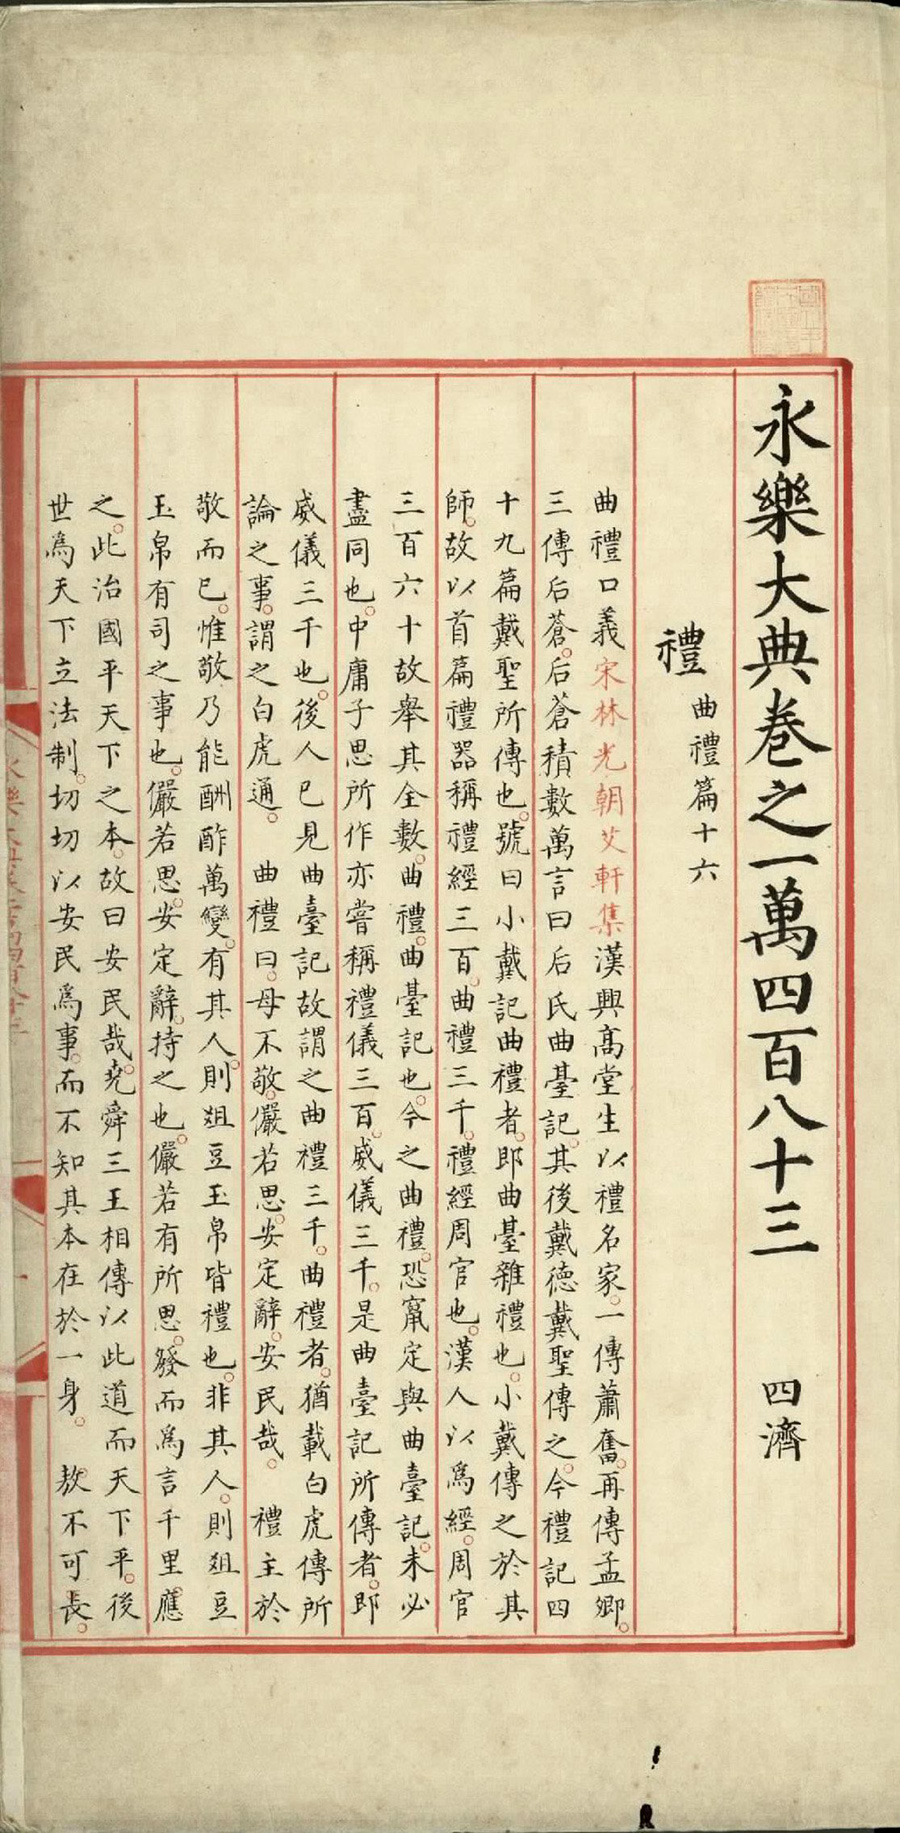 永樂大典卷之一萬四百八十三 四濟
禮 曲禮篇十六
曲禮口義宋林光朝艾軒集漢興高堂生以禮名家。一傳蕭奮。再傳孟卿。
三傳后蒼。后蒼積數萬言曰后氏曲臺記。其後戴德戴聖傳之。今禮記四
十九篇戴聖所傳也。號曰小戴記曲禮者。即曲臺雜禮也。小戴傳之於其
師。故以首篇禮器稱禮經三百。曲禮三千。禮經周官也。漢人以為經。周官
三百六十故舉其全數。曲禮。曲臺記也。今之曲禮。恐竄定與曲臺記。未必
盡同也。中庸子思所作亦嘗稱禮儀三百。威儀三千。是曲臺記所傳者。即
威儀三千也。後人已見曲臺記故謂之曲禮三千。曲禮者。猶載白虎傳所
論之事。謂之白虎通。 曲禮曰。毋不敬。儼若思。安定辭。安民哉。 禮主於
敬而已。惟敬乃能酬酢萬變。有其人。則俎豆玉帛皆禮也。非其人。則俎豆
玉帛有司之事也。儼若思。安定辭。持之也。儼若有所思。發而爲言千里應
之。此治國平天下之本。故曰安民哉。堯舜三王相傳以此道而天下平。後
世爲天下立法制。切切以安民爲事。而不知其本在於一身。 敖不可長。